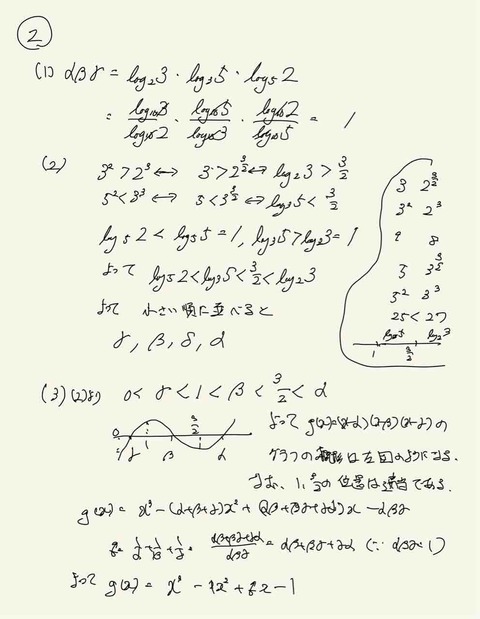 2
(1) αβγ = log₂3・log₃5・log₅2
= log₁₀3/log₁₀2・log₁₀5/log₁₀3・log₁₀2/log₁₀5 = 1
(2) 3² > 2³ ⟷ 3 > 2^(3/2) ⟷ log₂3 > 3/2
5² < 3³ ⟷ 5 < 3^(3/2) ⟷ log₃5 < 3/2
log₅2 < log₅5 = 1, log₃5 > log₃3 = 1
よって log₅2 < log₃5 < 3/2 < log₂3
よって 小さい順に並べると
γ, β, δ, α
3 2^(3/2)
3² 2³
9 8
5 3^(3/2)
5² 3³
25 < 27
log₃5 log₂3
1 3/2
(3) (2)より 0 < γ < 1 < β < 3/2 < α
0 γ 1 β 3/2 α
よって g(x)=(x-α)(x-β)(x-γ)の
グラフの概形は左図のようになる.
なお, 1, 3/2の位置は適当である.
g(x) = x³ - (α+β+γ)x² + (αβ+βγ+γα)x - αβγ
= 1/α + 1/β + 1/γ = (αβ+βγ+γα)/αβγ = αβ+βγ+γα (∵ αβγ=1)
よって g(x) = x³ - x² + x - 1